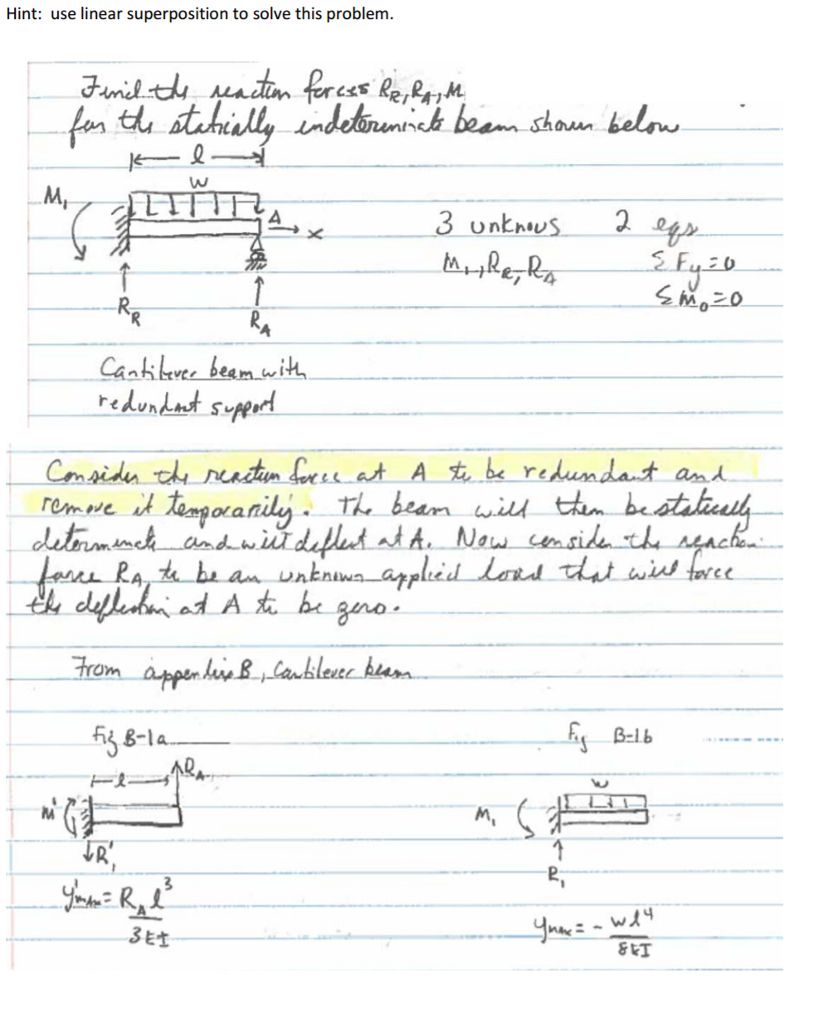 Hint: use linear superposition to solve this problem.
Find the reaction forces R_R, R_A, M,
for the statically indeterminate beam shown below
l
w
M₁
A
x
R_R
R_A
3 unknows
M₁, R_R, R_A
2 eqs
Σ Fy = 0
Σ M₀ = 0
Cantilever beam with
redundant support
Consider the reaction force at A to be redundant and
remove it temporarily. The beam will then be statically
determinate and will deflect at A. Now consider the reaction
force R_A to be an unknown applied load that will force
the deflection at A to be zero.
From appendix B, Cantilever beam
Fig B-1a
l
R_A
M'
R'₁
y'max = R_A l³
3EI
Fig B-1b
w
M₁
R₁
ymax = - wl⁴
8EI